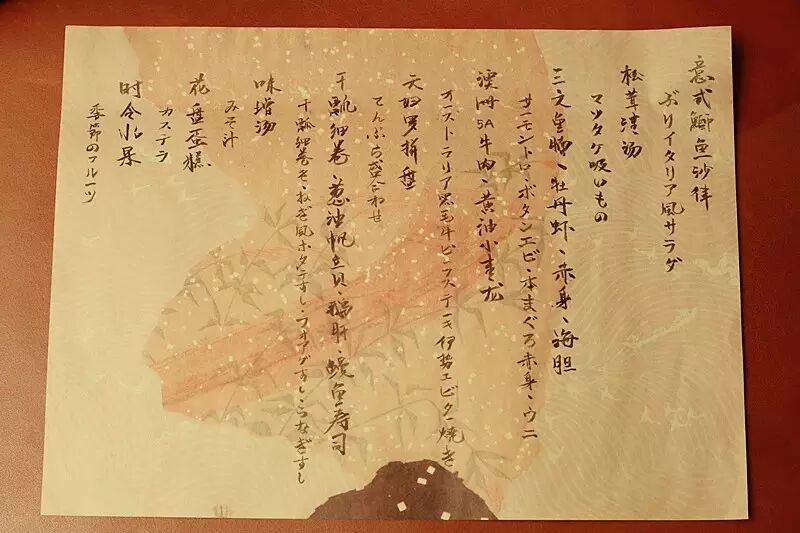 意式鰤魚沙律
ぶりイタリア風サラダ
松茸清汤
マツタケ吸いもの
三文鱼腩、牡丹虾、赤身、海胆
サーモントロ、ボタンエビ、本まぐろ赤身、ウニ
澳州5A牛肉、黄油小青龙
オーストラリア黒毛牛ビーフステーキ伊勢エビバター焼き
天妇罗拼盘
てんぷら盛合わせ
干瓢细卷、葱油帆立贝、鹅肝、鳗鱼寿司
干瓢细巻き、ねぎ風ホタテすし、フォアグラすし、うなぎすし
味增汤
みそ汁
花盘蛋糕
カステラ
时令水果
季節のフルーツ